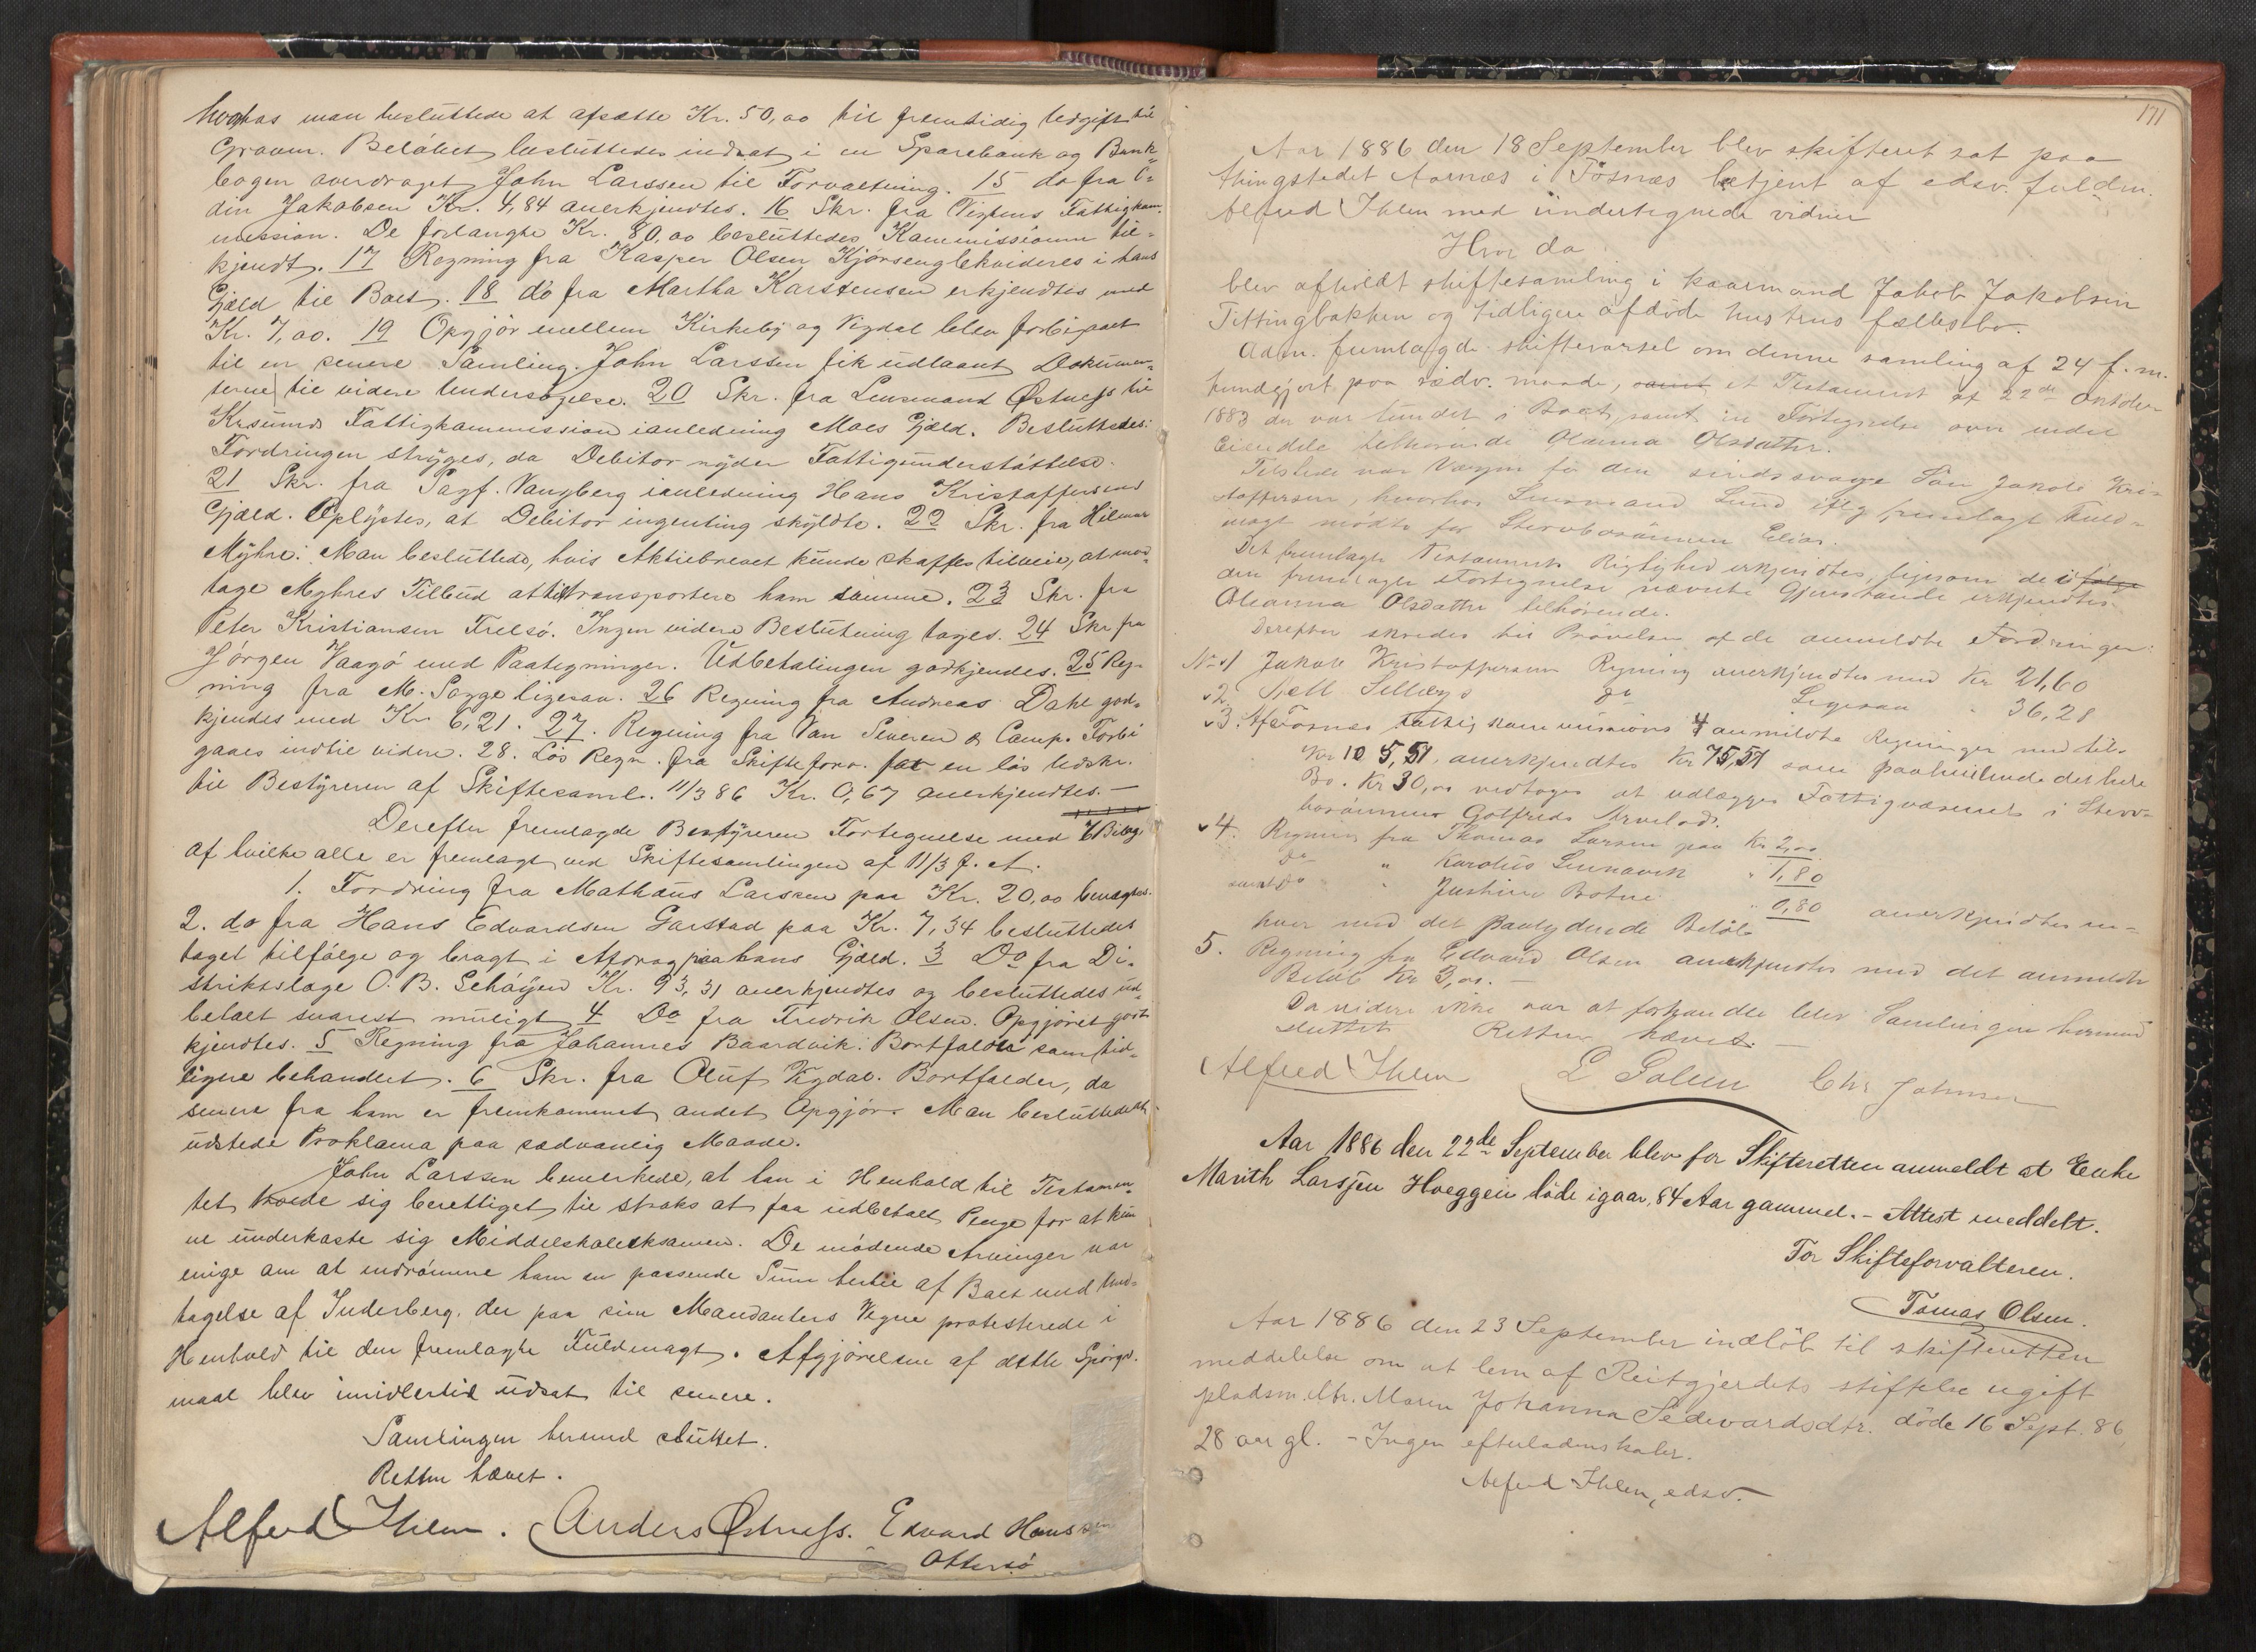 man besluttede at afsætte Kr. 50,00 til fremtidig Udgift til
Graven. Beløbet besluttedes indsat i en Sparebank og Bank-
bogen overdraget John Larssen til Forvaltning. 15 do fra O-
din Jakobsen Kr. 4,84 anerkjendtes. 16 Skr. fra Vigtens Fattigkom-
mission. De forlangte Kr. 80,00 besluttedes Kommissionen til-
kjendt. 17 Regning fra Kasper Olsen Kjørseng likvideres i hans
Gjæld til Boet. 18 do fra Martha Karstensen erkjendtes med
Kr. 7,00. 19 Opgjør mellem Kirkeby og Vigdal blev forbigaaet
til en senere Samling. John Larssen fik udlaant Dokumen-
terne til videre Undersøgelse. 20 Skr. fra Lensmand Østnefs til
Fattigkommission ianledning Moes Gjæld. Besluttedes:
Fordringen stryges, da Debitor nyder Fattigunderstøttelse.
21 Skr. fra Sagf. Vangberg ianledning Hans Kristoffersens
Gjæld. Oplystes, at Debitor ingenting skyldte. 22 Skr. fra Hilmar
Myhre: Man besluttede, hvis Aktiebrevet kunde skaffes tilveie, at mod-
tage Myhres Tilbud at transportere ham samme. 23 Skr. fra
Peter Kristiansen Frelsø. Ingen videre Beslutning toges. 24 Skr fra
Jørgen Vaagø med Paategninger. Udbetalingen godkjendes. 25 Reg-
ning fra M. Sagge ligesaa. 26 Regning fra Andreas Dahl god-
kjendes med Kr. 6,21. 27. Regning fra Van Severen & Comp. Forbi
gaaes indtil videre. 28. Løs Regn. fra Skifteforv. for en løs Udskr.
til Bestyreren af Skiftesaml. 11/3 86 Kr. 0,67 anerkjendtes. —
Derefter fremlagde Bestyreren Fortegnelse med 6 Bilag
af hvilke alle er fremlagt ved Skiftesamlingen af 11/3 f. A.
1. Fordring fra Mathæus Larssen paa Kr. 20,00 benægtes.
2. do fra Hans Edvardsen Garstad paa Kr. 7,34 besluttedes
taget tilfølge og bragt i Afdrag paa hans Gjæld. 3 Do fra Di-
striktslæge O. B. Schøyen Kr. 93,31 anerkjendtes og besluttedes ud-
betalt snarest muligt. 4 Do fra Fredrik Olsen. Opgjøret god-
kjendtes. 5 Regning fra Johannes Baardvik. Bortfalder som tid-
ligere behandlet. 6 Skr. fra Oluf Vigdal. Bortfalder, da
senere fra ham er fremkommet andet Opgjør. Man besluttede at
udstede Proklama paa sædvanlig Maade.
John Larssen bemerkede, at han i Henhold til Testamen-
tet troede sig berettiget til straks at faa udbetalt Penge for at kun
ne underkaste sig Middelskoleeksamen. De mødende Arvinger var
enige om at indrømme ham en passende Sum hertil af Boet med Und-
tagelse af Inderberg, der paa sine Mandanters Vegne protesterede i
Henhold til den fremlagte Fuldmagt. Afgjørelsen af dette Spørgs-
maal blev imidlertid udsat til senere.
Samlingen hermed sluttet.
Retten hævet.
Alfred Ihlen. Anders Østnefs. Edvard Hanssen
Ottersø
171
Aar 1886 den 18 September blev skifteret sat paa
thingstedet Aarnæs i Fosnæs betjent af edsv. fuldm.
Alfred Ihlen med undertegnede vidner
Hvor da
blev afholdt skiftesamling i kaarmand Jakob Jakobsen
Tettingbakken og tidligere afdøde hustrus fællesbo.
Adm. fremlagde skiftevarsel om denne samling af 24 f. m.
kundgjort paa sædv. maade, samt et Testament af 22de Oktober
1883 der var fundet i Boet, samt en Fortegnelse over endel
Eiendele tilhørende Oleanna Olsdatter.
Tilstede var Værgen for den sindssvage Søn Jakob Kri-
stoffersen, hvorhos Lensmand Lund iflg. fremlagt Fuld-
magt mødte for Stervbosønnen Elias.
Det fremlagte Testaments Rigtighed erkjendtes, ligesom de i følge
den fremlagte Fortegnelse nævnte Gjenstande erkjendtes
Oleanna Olsdatter tilhørende.
Derefter skredes til Prøvelse af de anmeldte Fordringer:
No 1 Jakob Kristoffersens Regning anerkjendtes med Kr 21,60
2. Do Ligesaa " 36,28
3. Af Fosnes fattigkommissions 4 anmeldte Regninger med tils.
Kr 105,51, anerkjendtes Kr 75,51 som paahvilende det hele
Bo. Kr 30,00 vedtoges at udlægges Fattigvæsenet i Sterv-
bosønnen Gotfreds Arvelod.
4. Regning fra Thomas Larsen paa Kr 2,00
Do " Karolius " 1,80
samt Do " Justine Botne " 0,80 anerkjendtes en-
hver med det paalydende Beløb
5. Regning fra Edvard Olsen anerkjendtes med det anmeldte
Beløb Kr 3,00. —
Da videre ikke var at forhandle blev Samlingen hermed
sluttet. Retten hævet. —
Alfred Ihlen Chr Johnsen
Aar 1886 den 22de September blev for Skifteretten anmeldt at Enke
Marith Larsjen Hoeggen døde igaar, 84 Aar gammel. - Attest meddelt.
For Skifteforvalteren.
Tomas Olsen.
Aar 1886 den 23 September indløb til skifteretten
meddelelse om at lem af Reitgjerdets stiftelse ugift
pladsm. dtr. Maren Johanna Sedevardsdtr. døde 16 Sept. 86,
28 aar gl. - Ingen efterladenskaber.
Alfred Ihlen, edsv.